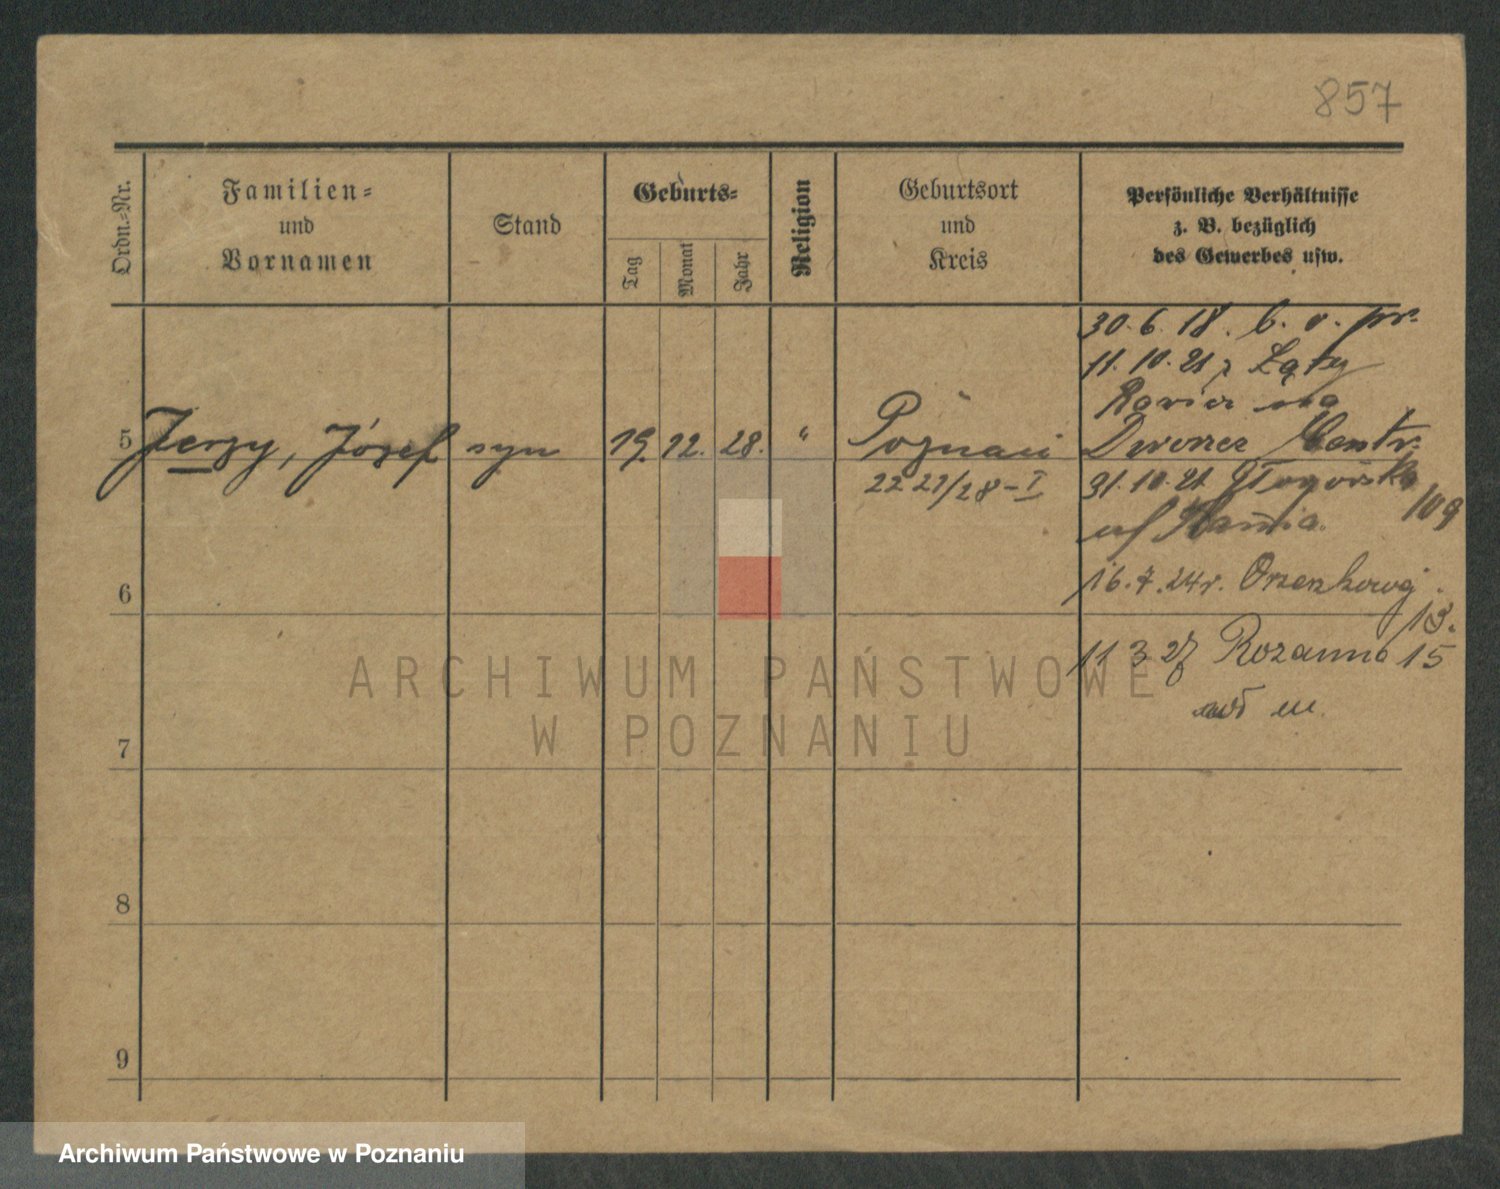 857
Ordn.-Nr.
Familien-
und
Vornamen
Stand
Geburts-
Tag
Monat
Jahr
Religion
Geburtsort
und
Kreis
Persönliche Verhältnisse
z. B. bezüglich
des Gewerbes usw.
30. 6. 18. b. v. pr.
11. 10. 21 z Łąty
na
5 Jerzy, Józef syn 19. 12. 28. " Poznań
Dworzec Centr.
22 21/28 - I
31. 10. 21
109
6
16. 7. 24 r.
13.
11 3 27 15
7
8
9
ARCHIWUM PAŃSTWOWE
W POZNANIU
Archiwum Państwowe w Poznaniu